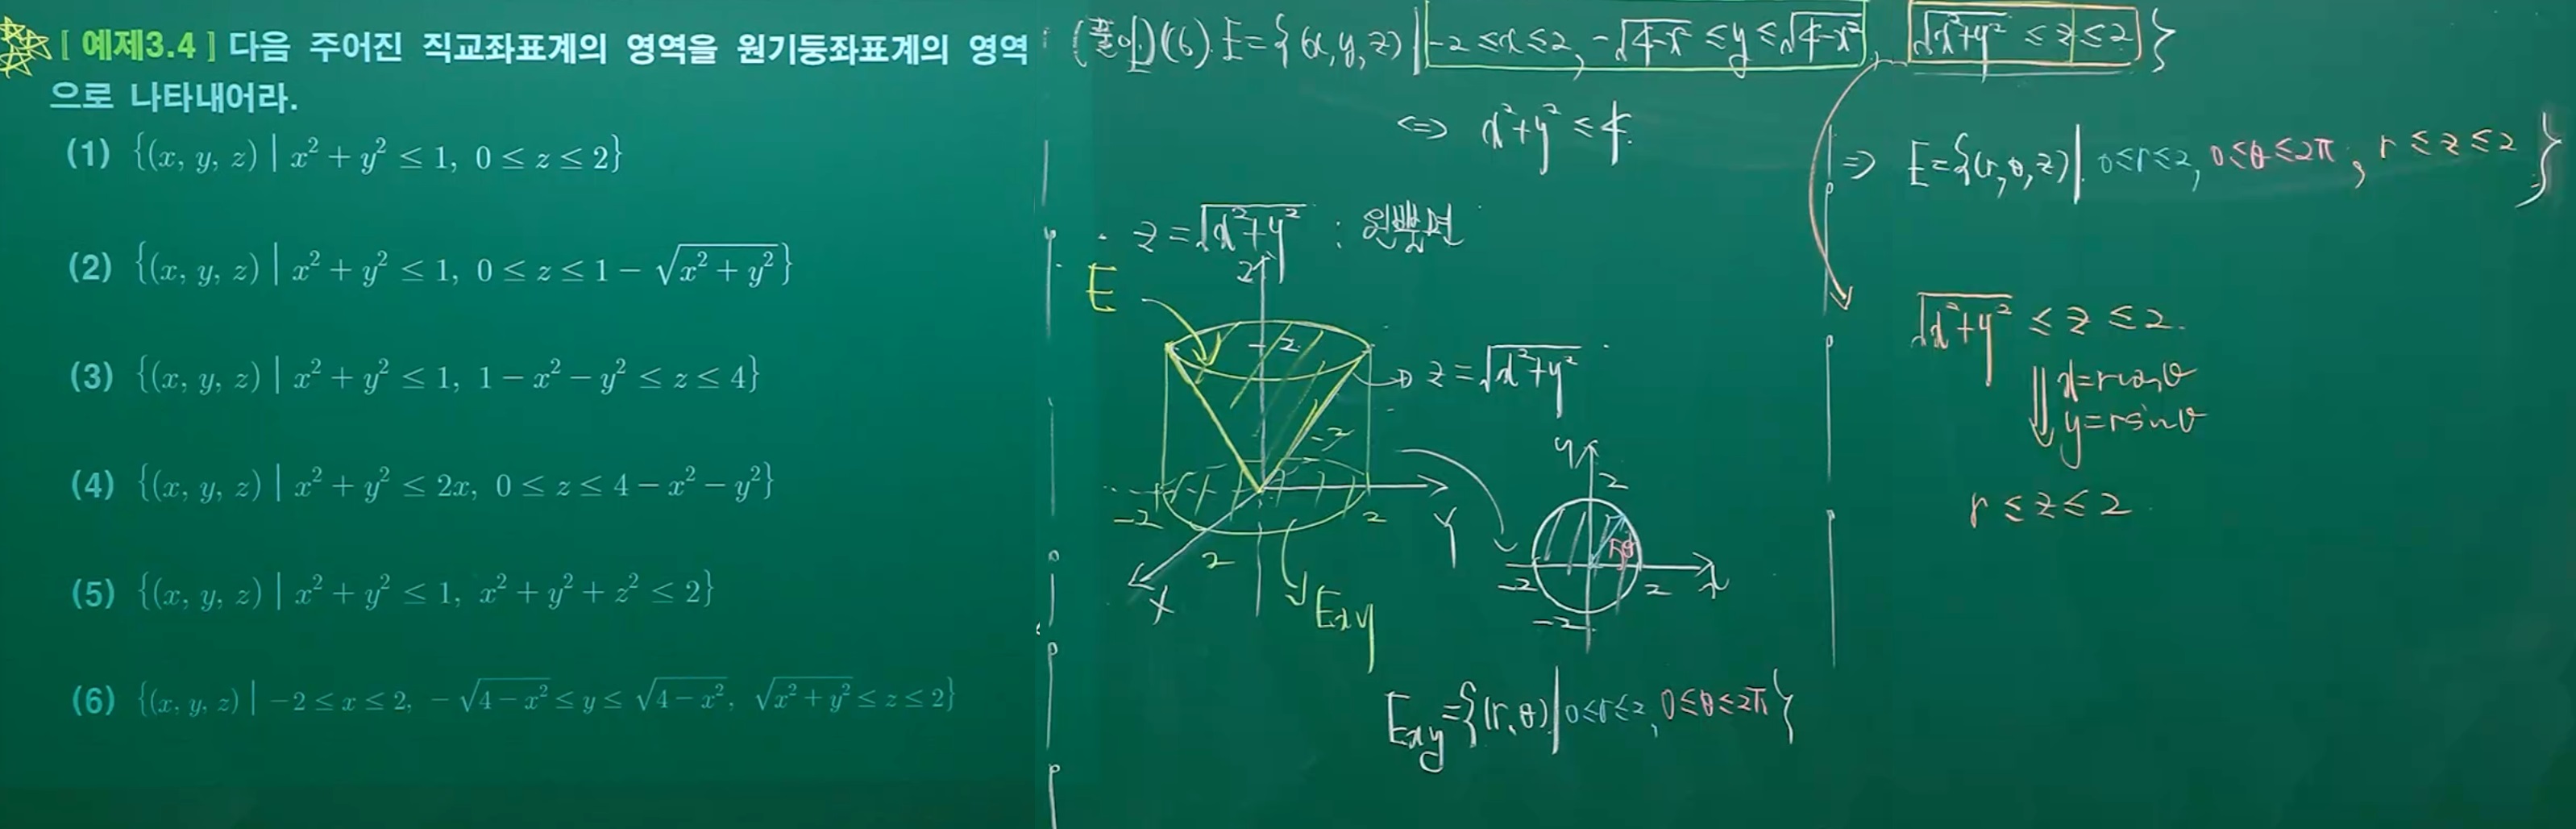 [ 예제3.4 ] 다음 주어진 직교좌표계의 영역을 원기둥좌표계의 영역
으로 나타내어라.
(1) {(x, y, z) | x² + y² ≤ 1, 0 ≤ z ≤ 2}
(2) {(x, y, z) | x² + y² ≤ 1, 0 ≤ z ≤ 1 − √(x² + y²)}
(3) {(x, y, z) | x² + y² ≤ 1, 1 − x² − y² ≤ z ≤ 4}
(4) {(x, y, z) | x² + y² ≤ 2x, 0 ≤ z ≤ 4 − x² − y²}
(5) {(x, y, z) | x² + y² ≤ 1, x² + y² + z² ≤ 2}
(6) {(x, y, z) | −2 ≤ x ≤ 2, −√(4 − x²) ≤ y ≤ √(4 − x²), √(x² + y²) ≤ z ≤ 2}
(풀이)(6). E = {(x, y, z) | −2 ≤ x ≤ 2, −√(4−x²) ≤ y ≤ √(4−x²), √(x²+y²) ≤ z ≤ 2}
⇔ x²+y² ≤ 4.
· z = √(x²+y²) : 원뿔면
E
z
2
z = √(x²+y²)
−2
−2
2
Y
2
X
Exy
y
2
θ
−2
2
x
−2
Exy = {(r, θ) | 0≤r≤2, 0≤θ≤2π}
⇒ E = {(r, θ, z) | 0≤r≤2, 0≤θ≤2π, r ≤ z ≤ 2}
√(x²+y²) ≤ z ≤ 2.
⇓ x = rcosθ
y = rsinθ
r ≤ z ≤ 2